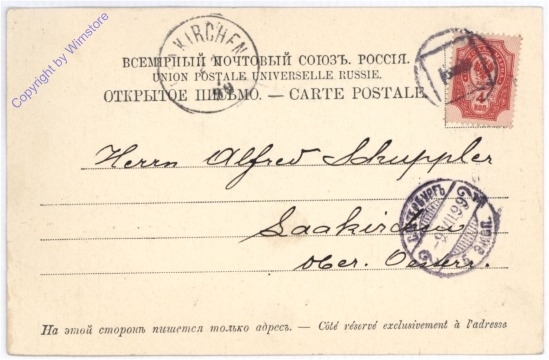 Copyright by Wimstore
KIRCHEN
ВСЕМІРНЫЙ ПОЧТОВЫЙ СОЮЗЪ. РОССІЯ.
UNION POSTALE UNIVERSELLE RUSSIE.
ОТКРЫТОЕ ПИСЬМО. — CARTE POSTALE.
Herrn Alfred Schuppler
Laakirchen
Ober. Oesterr.
На этой сторонѣ пишется только адресъ. — Côté réservé exclusivement à l'adresse